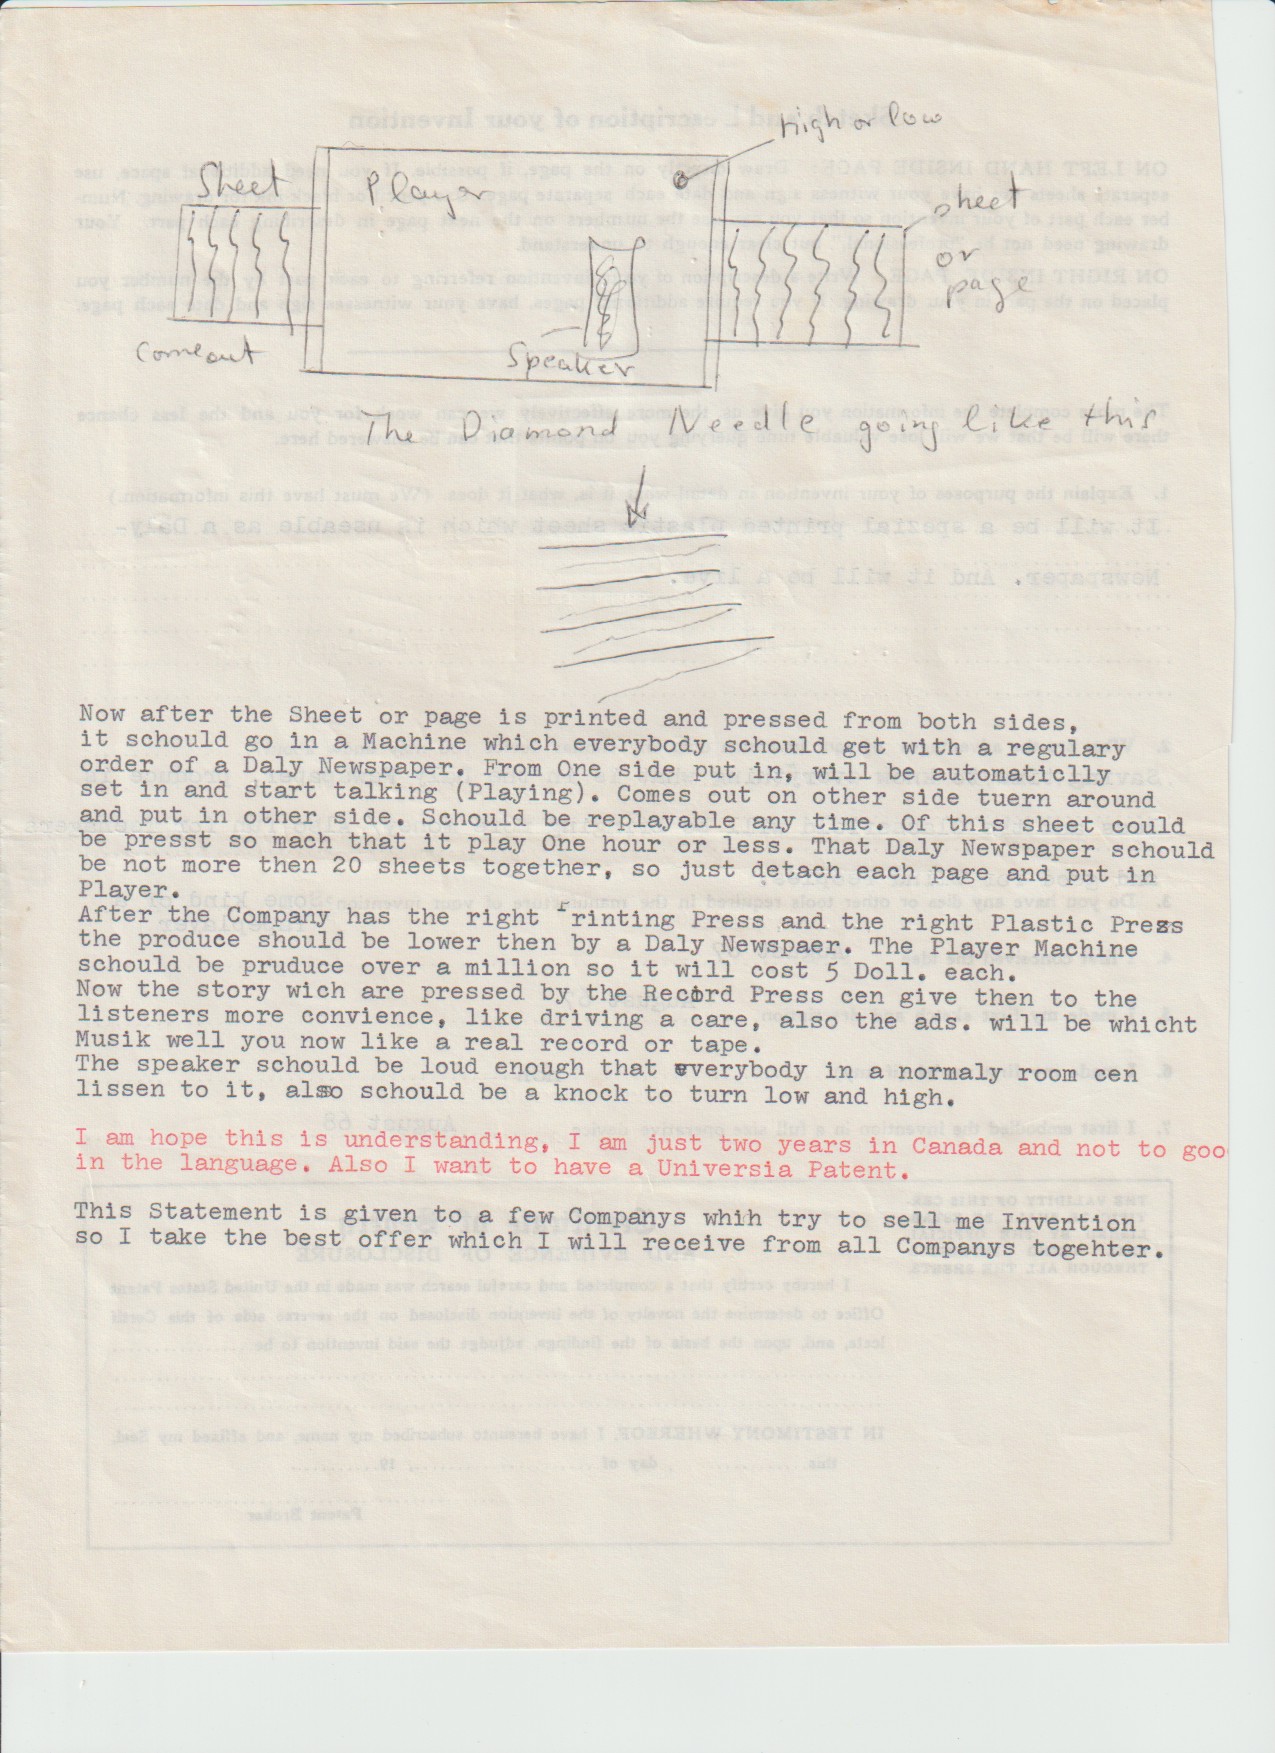 High or low
Sheet
Player
sheet
or
page
Come out
Speaker
The Diamond Needle going like this
Now after the Sheet or page is printed and pressed from both sides,
it schould go in a Machine which everybody schould get with a regulary
order of a Daly Newspaper. From One side put in, will be automaticlly
set in and start talking (Playing). Comes out on other side tuern around
and put in other side. Schould be replayable any time. Of this sheet could
be presst so mach that it play One hour or less. That Daly Newspaper schould
be not more then 20 sheets together, so just detach each page and put in
Player.
After the Company has the right rinting Press and the right Plastic Press
the produce should be lower then by a Daly Newspaer. The Player Machine
schould be pruduce over a million so it will cost 5 Doll. each.
Now the story wich are pressed by the Record Press cen give then to the
listeners more convience, like driving a care, also the ads. will be whicht
Musik well you now like a real record or tape.
The speaker schould be loud enough that everybody in a normaly room cen
lissen to it, also schould be a knock to turn low and high.
I am hope this is understanding, I am just two years in Canada and not to goo
in the language. Also I want to have a Universia Patent.
This Statement is given to a few Companys whih try to sell me Invention
so I take the best offer which I will receive from all Companys togehter.